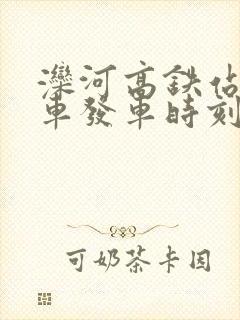 灤河高鉄佔
車發車時刻
可奶茶卡因